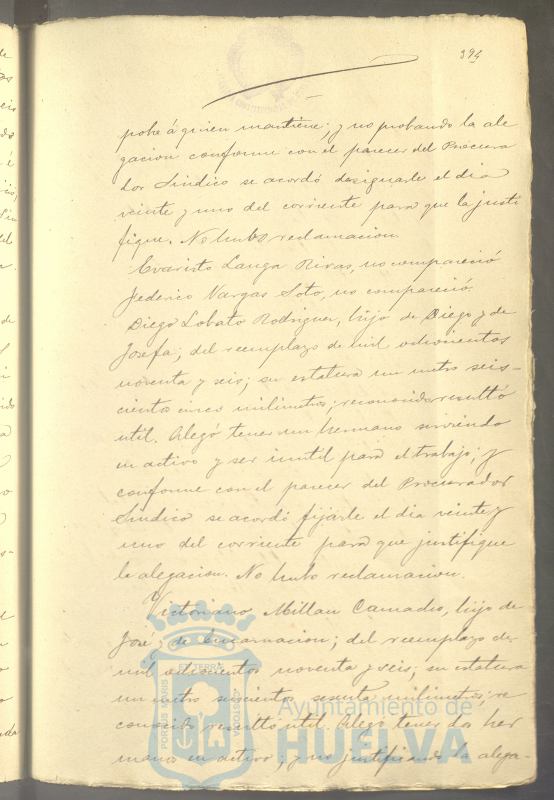 394
pobre á quien mantiene; y no probando la ale
gacion conforme con el parecer del Procura
dor Sindico se acordó designarle el dia
veinte y uno del corriente para que la justi
fique. No hubo reclamacion.
Evaristo Langa Rivas, no compareció
Federico Vargas Soto, no compareció.
Diego Lobato Rodriguez, hijo de Diego y de
Josefa; del reemplazo de mil ochocientos
noventa y seis; su estatura un metro seis-
cientos cinco milimetros; reconocido resultó
util. Alegó tener un hermano sirviendo
en activo y ser inutil para el trabajo; y
conforme con el parecer del Procurador
Sindico se acordó fijarle el dia veinte y
uno del corriente para que justifique
la alegacion. No hubo reclamacion.
Victoriano Millan Camacho, hijo de
José y de Encarnacion; del reemplazo de
mil ochocientos noventa y seis; su estatura
un metro seiscientos sesenta milimetros; re
conocido resultó util. Alegó tener dos her
manos en activo; y no justificando la alega-
PORTUS MARIS ET TERRÆ CUSTODIA
Ayuntamiento de
HUELVA